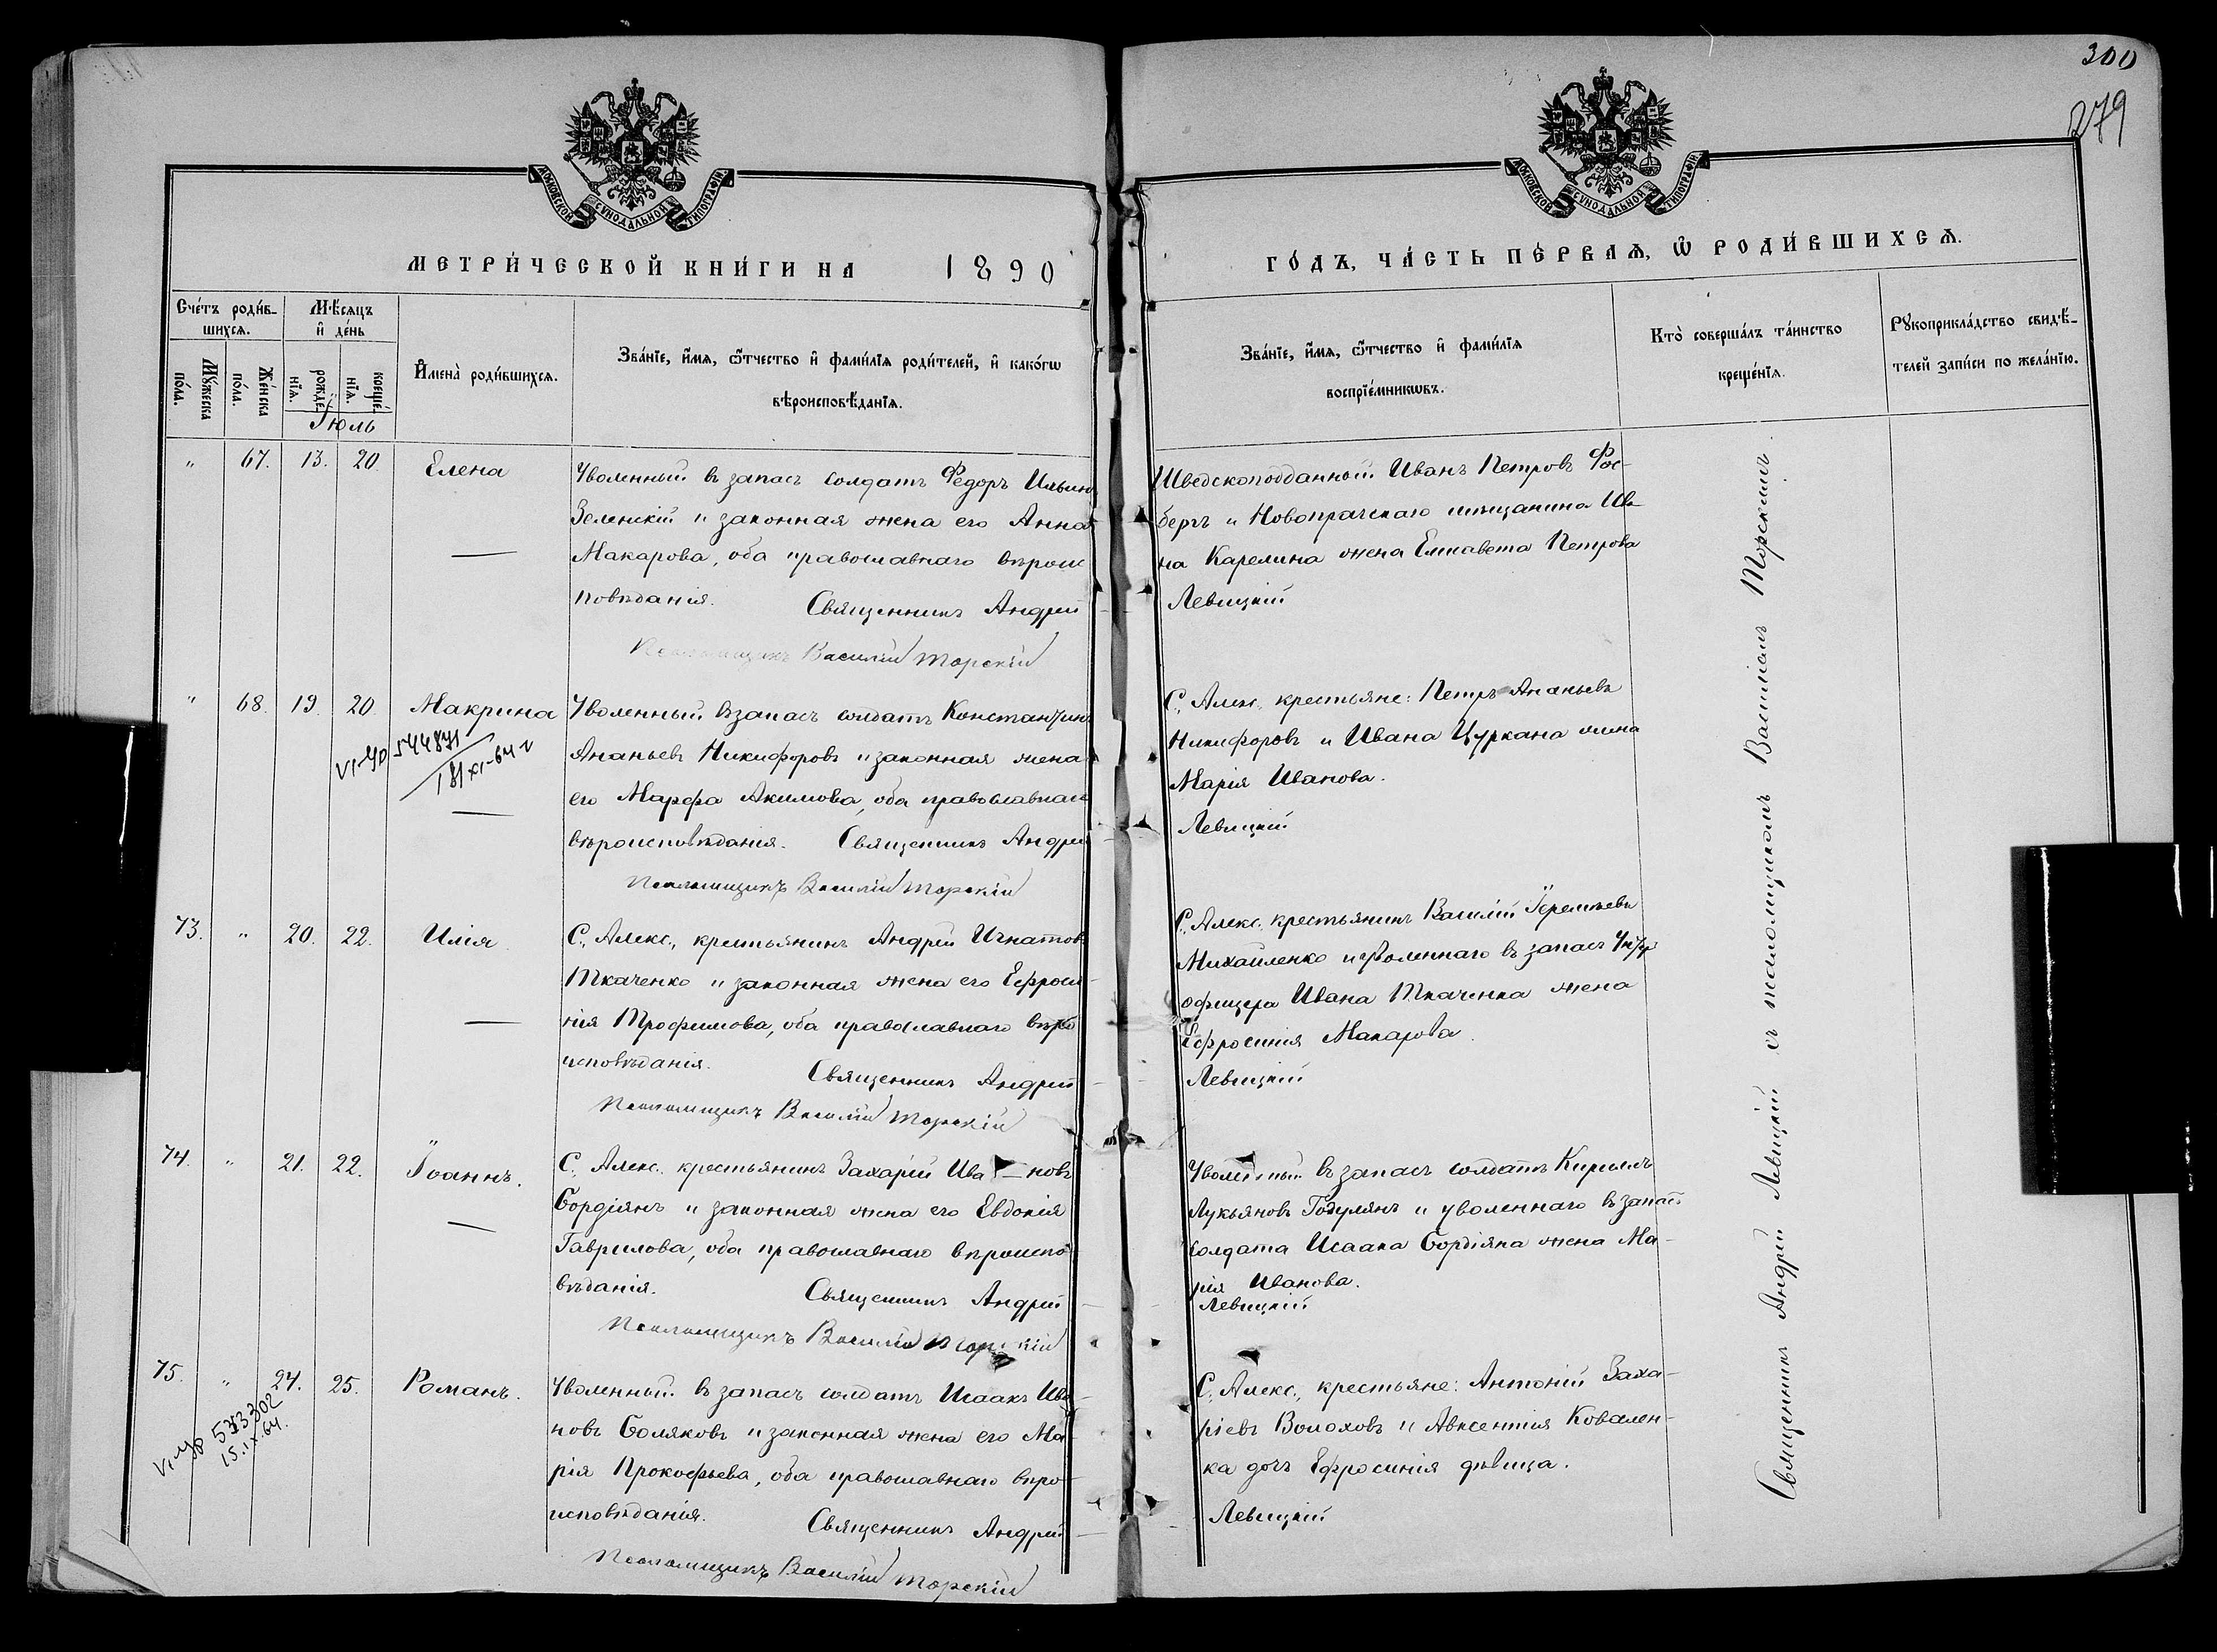 300
279
МОСКОВСКОЙ СУНОДАЛЬНОЙ ТИПОГРАФІИ
МОСКОВСКОЙ СУНОДАЛЬНОЙ ТИПОГРАФІИ
МЕТРИ́ЧЕСКОЙ КНИ́ГИ НА 1890
ГО́ДЪ, ЧА́СТЬ ПЕ́РВАѦ, Ѡ҆ РОДИ́ВШИХСѦ.
Сче́тъ роди́в-
шихсѧ.
Мꙋ́жеска
по́ла.
Же́нска
по́ла.
Мѣ́сѧцъ
и҆ де́нь
рожде́-
нїѧ.
креще́-
нїѧ.
Іюль
И҆мена̀ роди́вшихсѧ.
Зва́нїе, и҆́мѧ, ѻ҆́тчество и҆ фами́лїѧ роди́телей, и҆ како́гѡ
вѣроисповѣ́данїѧ.
Зва́нїе, и҆́мѧ, ѻ҆́тчество и҆ фами́лїѧ
воспрїе́мникѡвъ.
Кто̀ соверша́лъ та́инство
креще́нїѧ.
Рꙋкоприкла́дство свидѣ́-
телей за́писи по жела́нїю.
" 67. 13. 20. Елена
Уволенный въ запасъ солдатъ Федоръ Ильинъ
Зеленскій и законная жена его Анна
Макарова, оба православнаго вѣроис
повѣданія. Священникъ Андрей
Псаломщикъ Василій Торскій
Шведскоподданный Иванъ Петровъ Фос-
бергъ и Новопражскаго мѣщанина Ива-
на Карелина жена Елисавета Петрова
Левицкій
" 68. 19. 20. Макрина
VI-ЧО 544871
18/XI-64 г
Уволенный въ запасъ солдатъ Константинъ
Ананьевъ Никифоровъ и законная жена
его Марфа Акимова, оба православнаго
вѣроисповѣданія. Священникъ Андрей
Псаломщикъ Василій Торскій
С. Алекс. крестьяне: Петръ Ананьевъ
Никифоровъ и Ивана Цуркана жена
Марія Иванова.
Левицкій
73. " 20. 22. Илія
С. Алекс., крестьянинъ Андрей Игнатовъ
Ткаченко и законная жена его Ефроси-
нія Трофимова, оба православнаго вѣро
исповѣданія. Священникъ Андрей
Псаломщикъ Василій Торскій
С. Алекс. крестьянинъ Василій Іеремѣевъ
Михайленко и уволеннаго въ запасъ унтеръ
офицера Ивана Ткаченка жена
Ефросинія Макарова.
Левицкій
74. " 21. 22. Іоаннъ.
С. Алекс. крестьянинъ Захарій Ива - новъ
Бордіянъ и законная жена его Евдокія
Гаврилова, оба православнаго вѣроиспо
вѣданія. Священникъ Андрей
Псаломщикъ Василій Торскій
Уволенный въ запасъ солдатъ Кириллъ
Лукьяновъ Годулянъ и уволеннаго въ запасъ
солдата Исаака Бордіяна жена Ма-
рія Иванова.
Левицкій
75. " 24. 25. Романъ.
VI-УР 533302
15.IX.64.
Уволенный въ запасъ солдатъ Исаакъ Ива-
новъ Боляковъ и законная жена его Ма-
рія Прокофьева, оба православнаго вѣро-
исповѣданія. Священникъ Андрей
Псаломщикъ Василій Торскій
С. Алекс., крестьяне: Антоній Заха-
ріевъ Волоховъ и Авксентія Ковален-
ка дочь Ефросинія дѣвица.
Левицкій
Священникъ Андрей Левицкій съ псаломщикомъ Василіемъ Торскимъ